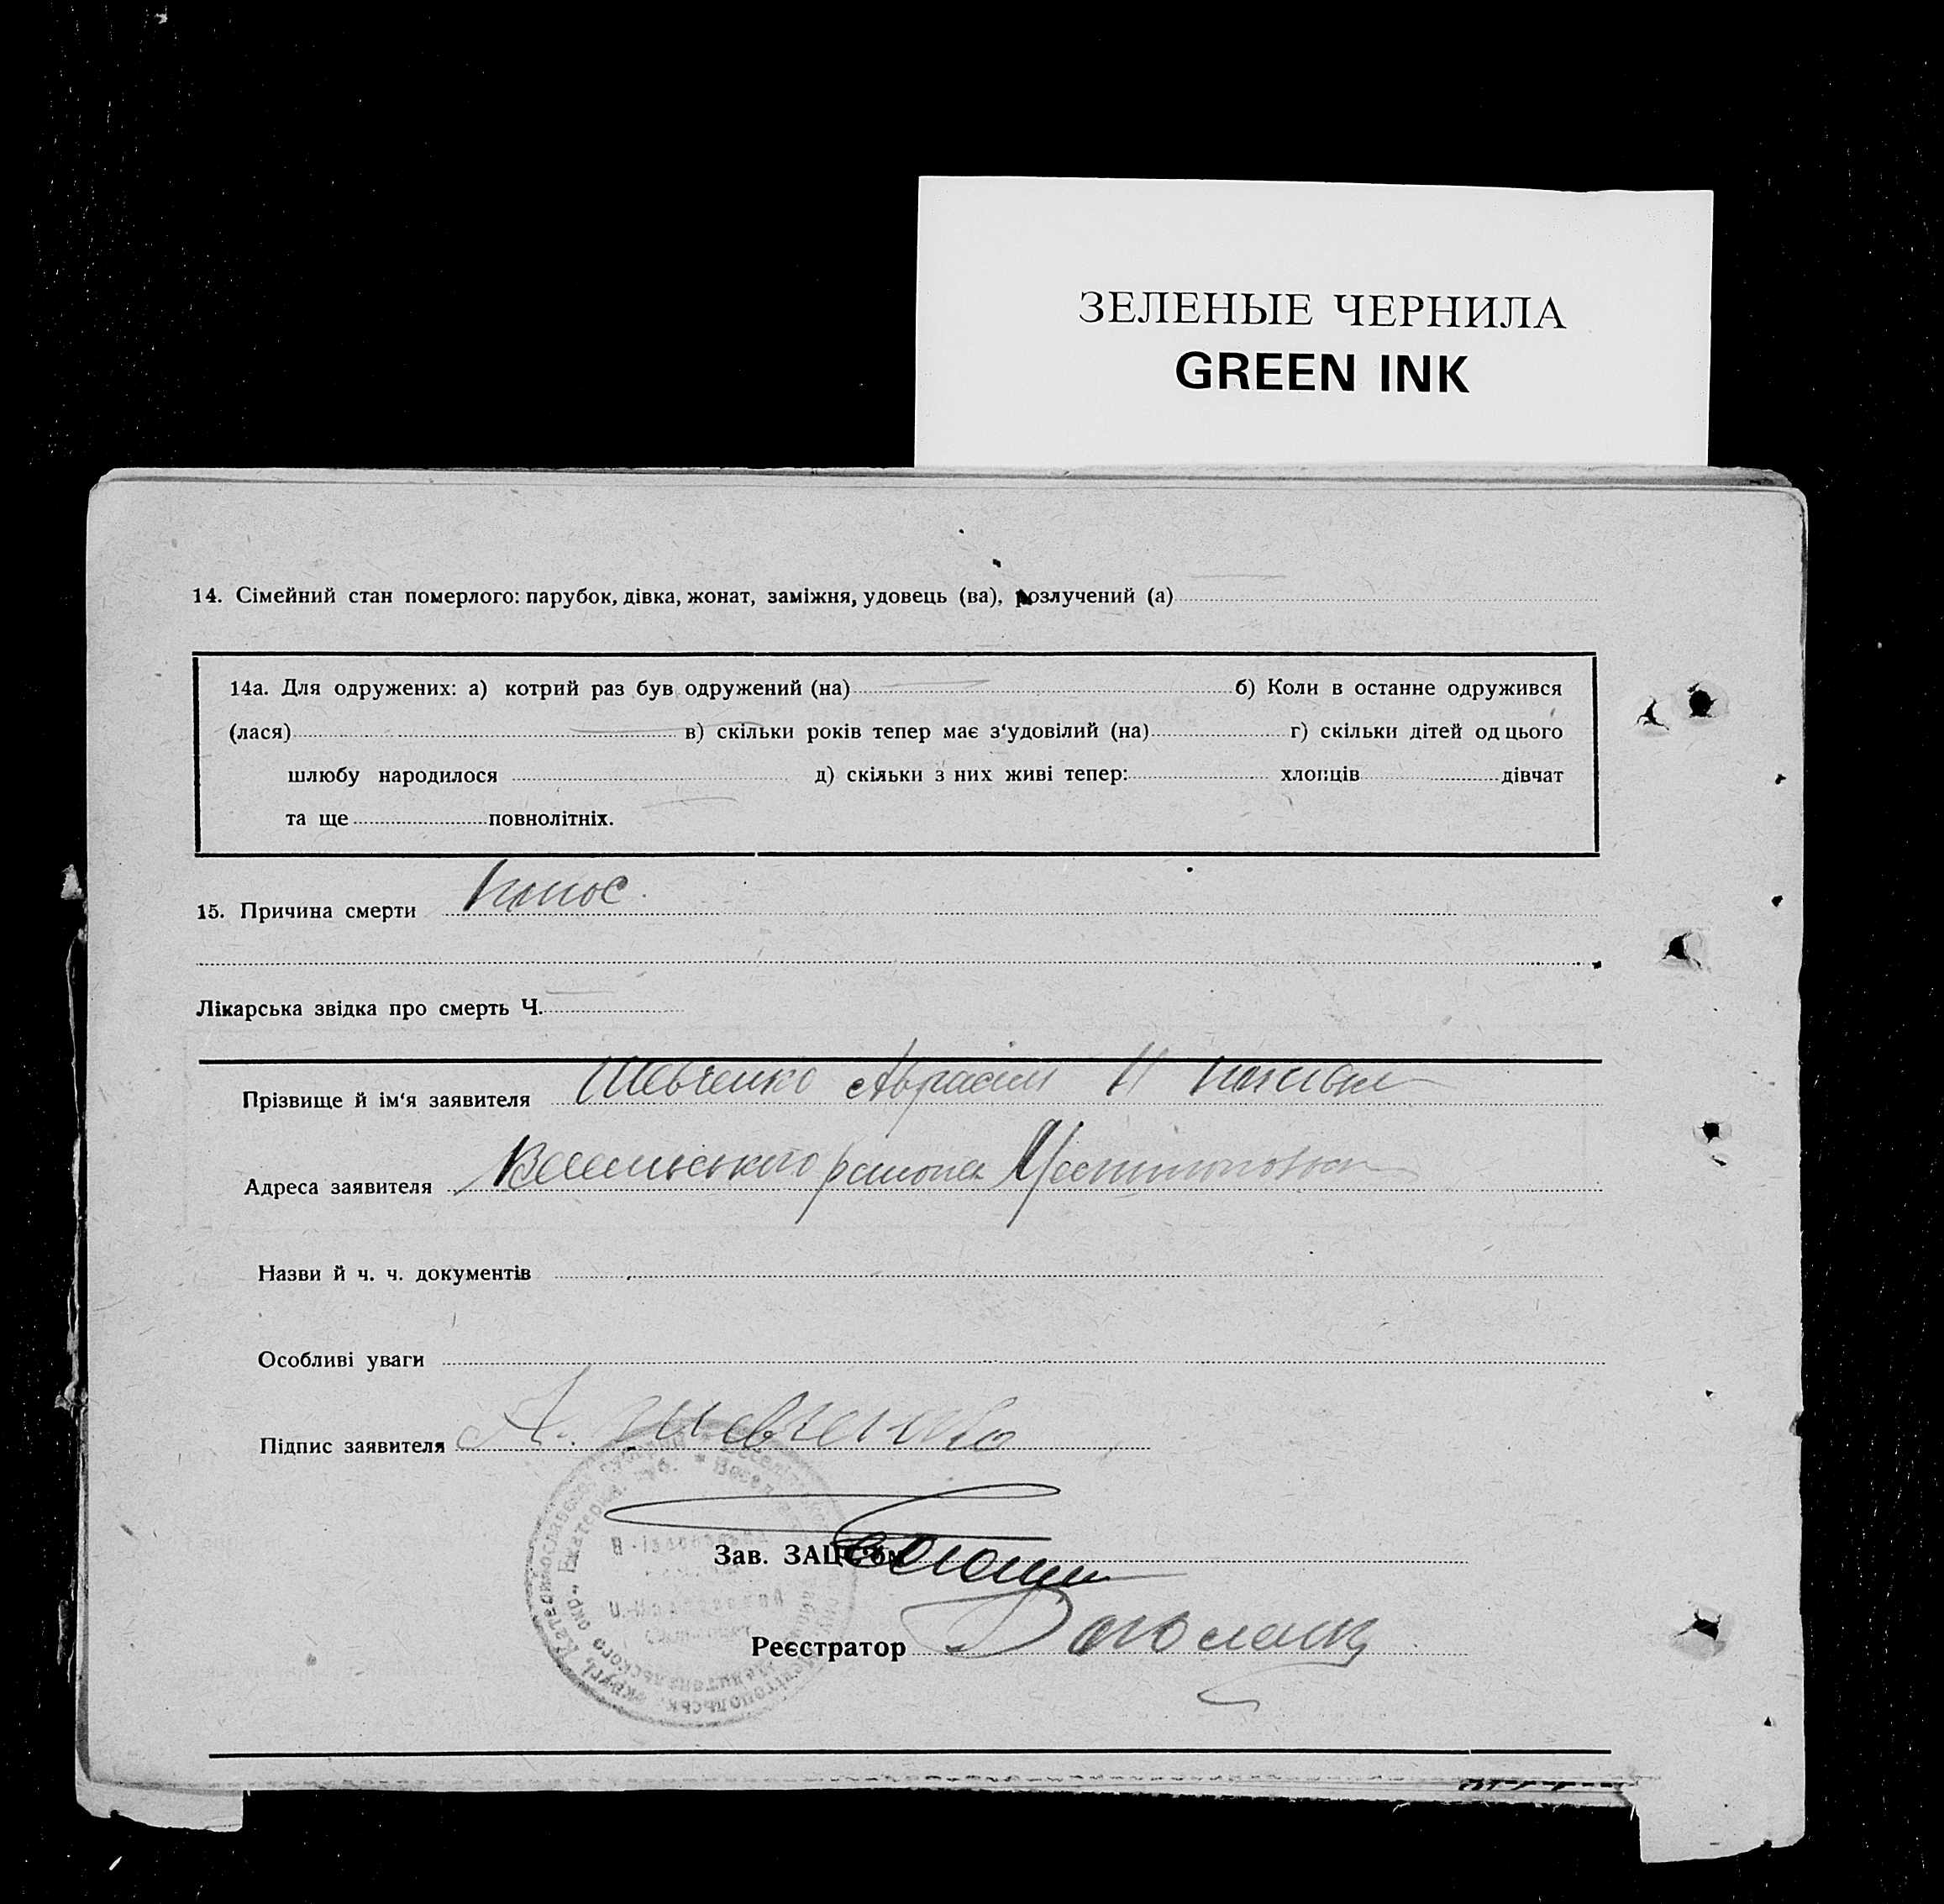 ЗЕЛЕНЫЕ ЧЕРНИЛА
GREEN INK
14. Сімейний стан померлого: парубок, дівка, жонат, заміжня, удовець (ва), розлучений (а)
14а. Для одружених: а) котрий раз був одружений (на) б) Коли в останне одружився
(лася) в) скільки років тепер має з‘удовілий (на) г) скільки дітей од цього
шлюбу народилося д) скільки з них живі тепер: хлопців дівчат
та ще повнолітніх.
15. Причина смерти Понос.
Лікарська звідка про смерть Ч.
Прізвище й ім‘я заявителя Шевченко
Адреса заявителя района
Назви й ч. ч. документів
Особливі уваги
Підпис заявителя А. Шевченко
Зав. ЗАЦСом
Реєстратор